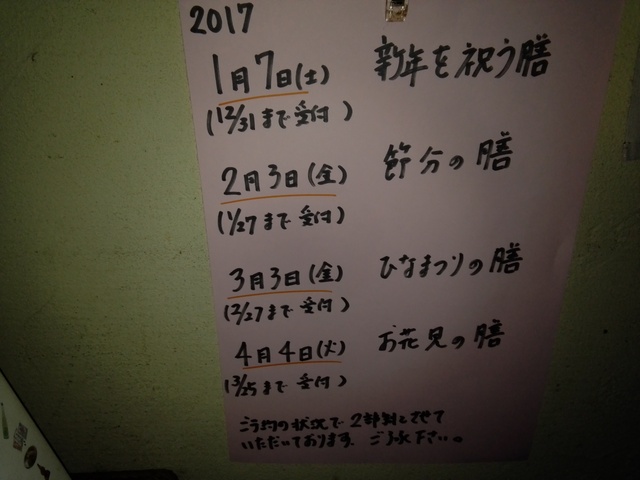 2017
1月7日(土) 新年を祝う膳
(12/31まで受付)
2月3日(金) 節分の膳
(1/27まで受付)
3月3日(金) ひなまつりの膳
(2/27まで受付)
4月4日(火) お花見の膳
(3/25まで受付)
ご予約の状況で2部制とさせて
いただいております。ご了承下さい。